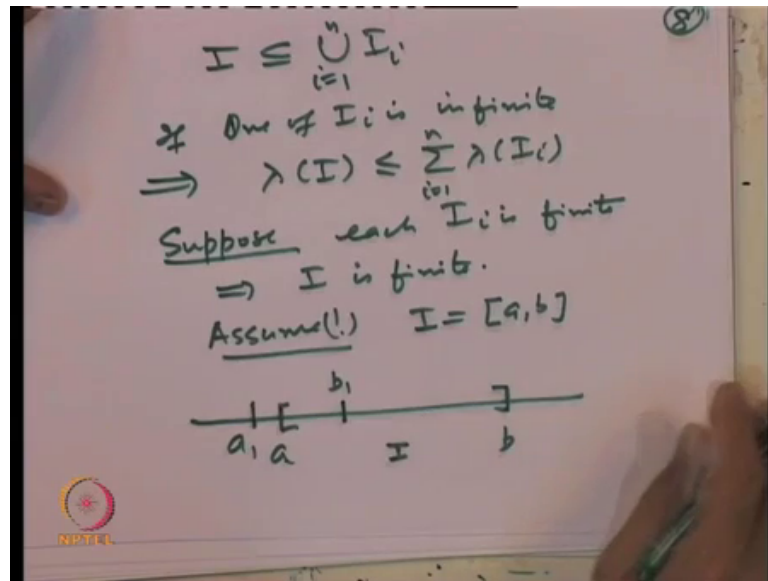 8
I ⊆ ⋃ⁿᵢ₌₁ Iᵢ
If One of Iᵢ is infinite
⟹ λ(I) ≤ Σⁿᵢ₌₁ λ(Iᵢ)
Suppose each Iᵢ is finite
⟹ I is finite.
Assume(!) I = [a,b]
b₁
a₁ a I b
NPTEL